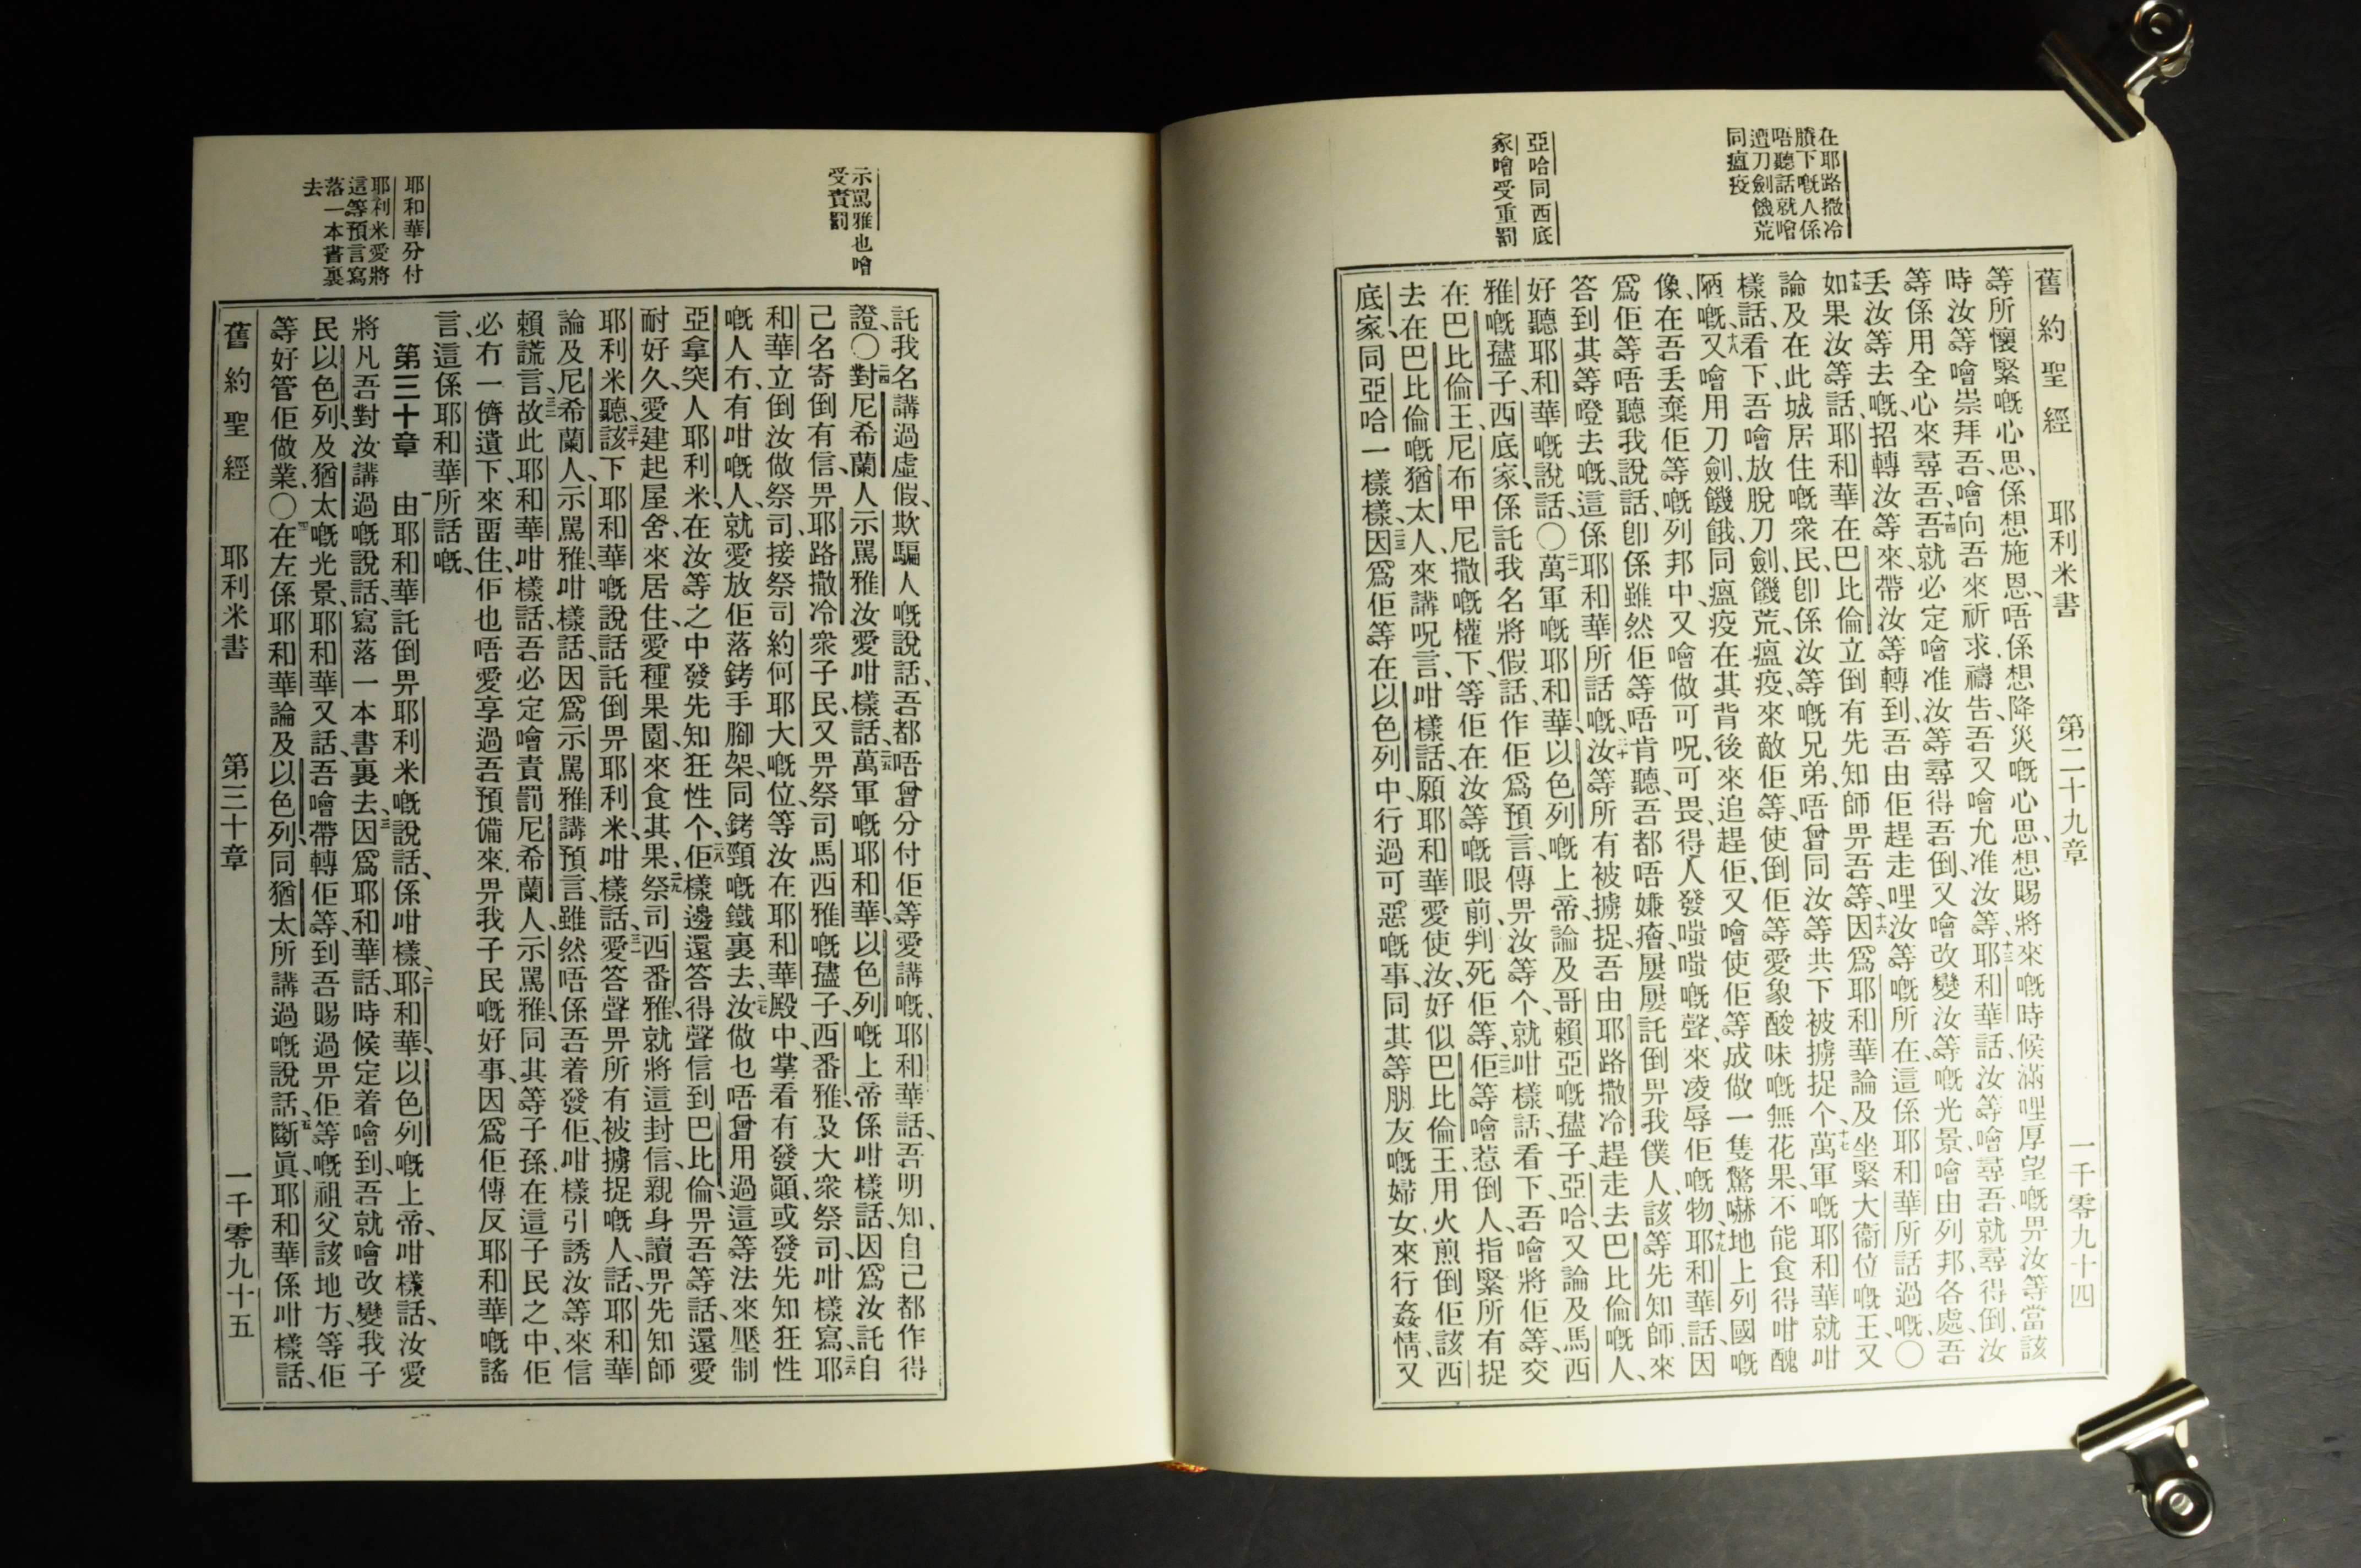 在耶路撒冷
賸下嘅人係
唔聽話就噲
遭刀劍饑荒
同瘟疫
亞哈同西底
家噲受重罰
舊約聖經 耶利米書 第二十九章 一千零九十四
等所懷緊嘅心思、係想施恩、唔係想降災嘅心思、想賜將來嘅時候滿哩厚望嘅畀汝等當該
時汝等噲崇拜吾、噲向吾來祈求禱告、吾又噲允准汝等、十三耶和華話、汝等噲尋吾就尋得倒、汝
等係用全心來尋吾、十四吾就必定噲准汝等尋得吾倒、又噲改變汝等嘅光景、噲由列邦、各處、吾
丢汝等去嘅、招轉汝等來、帶汝等轉到、吾由佢趕走哩汝等嘅所在、這係耶和華所話過嘅、〇
十五如果汝等話、耶和華在巴比倫立倒有先知師畀吾等、十六因爲耶和華論及坐緊大衞位嘅王、又
論及在此城居住嘅衆民、卽係汝等嘅兄弟、唔曾同汝等共下被擄捉个、十七萬軍嘅耶和華就咁
樣話、看下、吾噲放脫刀劍、饑荒、瘟疫、來敵佢等、使倒佢等愛象酸味嘅無花果、不能食得咁醜
陋嘅、十八又噲用刀劍、饑餓、同瘟疫、在其背後來追趕佢、又噲使佢等成做一隻驚嚇地上列國嘅
像、在吾丢棄佢等嘅列邦中、又噲做可呪、可畏、得人發嗤嗤嘅聲、來凌辱佢嘅物、十九耶和華話、因
爲佢等唔聽我說話、卽係雖然佢等唔肯聽、吾都唔嫌癐、屢屢託倒畀我僕人、該等先知師來
答到其等噔去嘅、這係耶和華所話嘅、二十汝等所有被擄捉、吾由耶路撒冷趕走去巴比倫嘅人、
好聽耶和華嘅說話、〇二一萬軍嘅耶和華、以色列嘅上帝、論及哥賴亞嘅孻子、亞哈、又論及馬西
雅嘅孻子、西底家、係託我名將假話作佢爲預言、傳畀汝等个、就咁樣話、看下、吾噲將佢等、交
在巴比倫王、尼布甲尼撒嘅權下、等佢在汝等嘅眼前、判死佢等、二二佢等噲惹倒人、指緊所有捉
去在巴比倫嘅猶太人、來講呪言、咁樣話、願耶和華愛使汝、好似巴比倫王、用火煎倒佢該西
底家、同亞哈一樣樣、二三因爲佢等在以色列中、行過可惡嘅事、同其等朋友嘅婦女、來行姦情、又
示罵雅也噲
受責罰
耶和華分付
耶利米愛將
這等預言寫
落一本書裏
去
託我名講過虛假、欺騙人嘅說話、吾都唔曾分付佢等愛講嘅、耶和華話、吾明知、自己都作得
證、〇二四對尼希蘭人示罵雅汝愛咁樣話、二五萬軍嘅耶和華、以色列嘅上帝、係咁樣話、因爲汝託自
己名寄倒有信、畀耶路撒冷衆子民、又畀祭司馬西雅嘅孻子、西番雅、及大衆祭司、咁樣寫、二六耶
和華立倒汝做祭司、接祭司約何耶大嘅位、等汝在耶和華殿中、掌看有發顚、或發先知狂性
嘅人冇、有咁嘅人、就愛放佢落銬手腳架、同銬頸嘅鐵裏去、二七汝做乜唔曾用過這等法、來壓制
亞拿突人耶利米、在汝等之中發先知狂性个、二八佢樣邊還答得聲信到巴比倫、畀吾等話、還愛
耐好久、愛建起屋舍、來居住、愛種果園、來食其果、二九祭司西番雅、就將這封信、親身讀畀先知師
耶利米聽、三十該下、耶和華嘅說話、託倒畀耶利米、咁樣話、三一愛答聲畀所有被擄捉嘅人、話、耶和華
論及尼希蘭人、示罵雅咁樣話、因爲示罵雅講預言、雖然唔係吾着發佢、咁樣引誘汝等來信
賴謊言、三二故此、耶和華咁樣話、吾必定噲責罰尼希蘭人、示罵雅、同其等子孫、在這子民之中、佢
必冇一儕遺下、來畱住、佢也唔愛享過吾預備來畀我子民嘅好事、因爲佢傳反耶和華嘅謠
言、這係耶和華所話嘅、
第三十章 一由耶和華託倒畀耶利米嘅說話、係咁樣、二耶和華、以色列嘅上帝、咁樣話、汝愛
將凡吾對汝講過嘅說話、寫落一本書裏去、三因爲耶和華話、時候定着噲到、吾就噲改變我子
民以色列、及猶太嘅光景、耶和華又話、吾噲帶轉佢等、到吾賜過畀佢等嘅祖父該地方、等佢
等好管佢做業、〇四在左係耶和華論及以色列、同猶太所講過嘅說話、五斷眞、耶和華係咁樣話、
舊約聖經 耶利米書 第三十章 一千零九十五